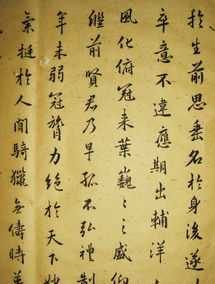 於生前思垂名於身後遂
卒意不違應期出輔洋
風化俯冠来葉巍々之盛仰
繼前賢君乃早孤不弘禮制
年未弱冠膂力絕於天下妙
氣挺於人間騎獵無儔時